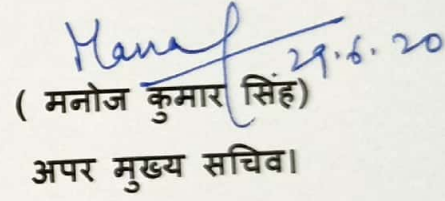 Manoj
29.6.20
( मनोज कुमार सिंह)
अपर मुख्य सचिव।